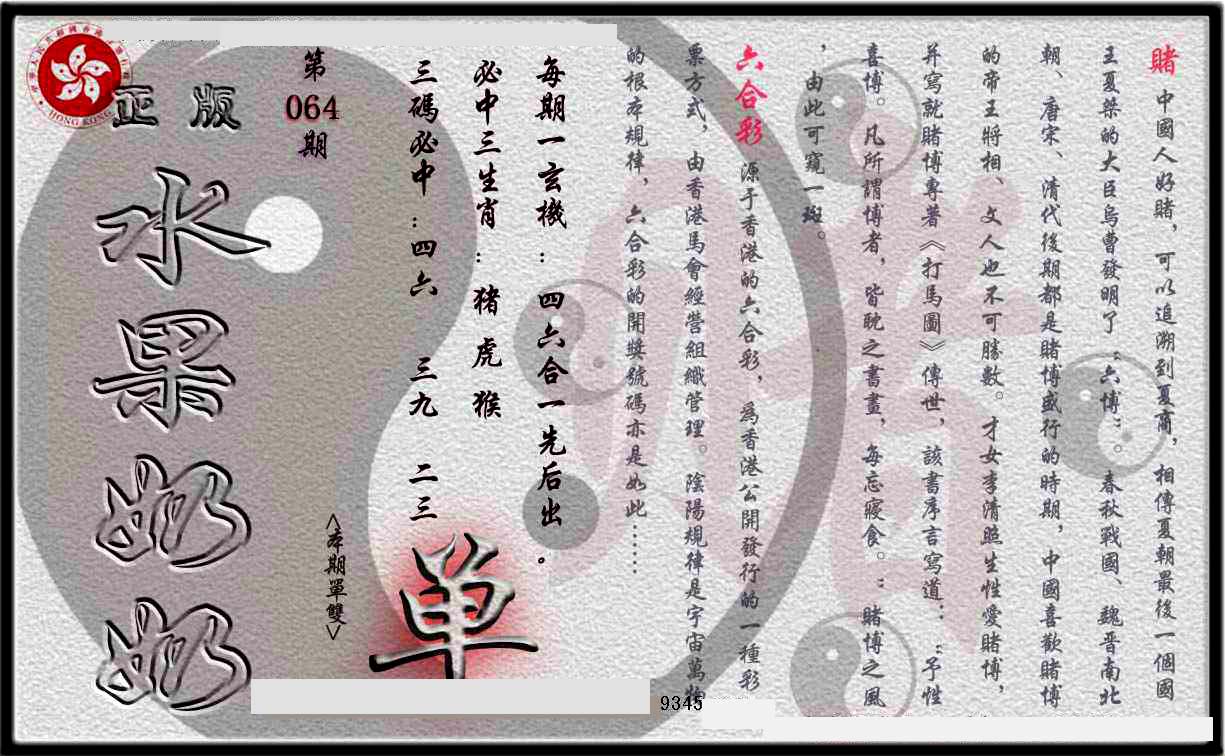 賭 中國人好賭，可以追溯到夏商，相傳夏朝最後一個國
王夏桀的大臣烏曹發明了“六博”。春秋戰國、魏晉南北
朝、唐宋、清代後期都是賭博盛行的時期，中國喜歡賭博
的帝王將相、文人也不可勝數。才女李清照生性愛賭博，
并寫就賭博專著《打馬圖》傳世，該書序言寫道：“予性
喜博。凡所謂博者，皆耽之書畫，每忘寢食。”賭博之風
，由此可窺一斑。
六合彩 源于香港的六合彩，為香港公開發行的一種彩
票方式，由香港馬會經營組織管理。陰陽規律是宇宙萬物
的根本規律，六合彩的開獎號碼亦是如此……
每期一玄機：四六合一先后出。
必中三生肖：猪虎猴
三碼必中：四六 三九 二三
<本期單雙>
单
第
064
期
正版
水果奶奶
HONG KONG
9345